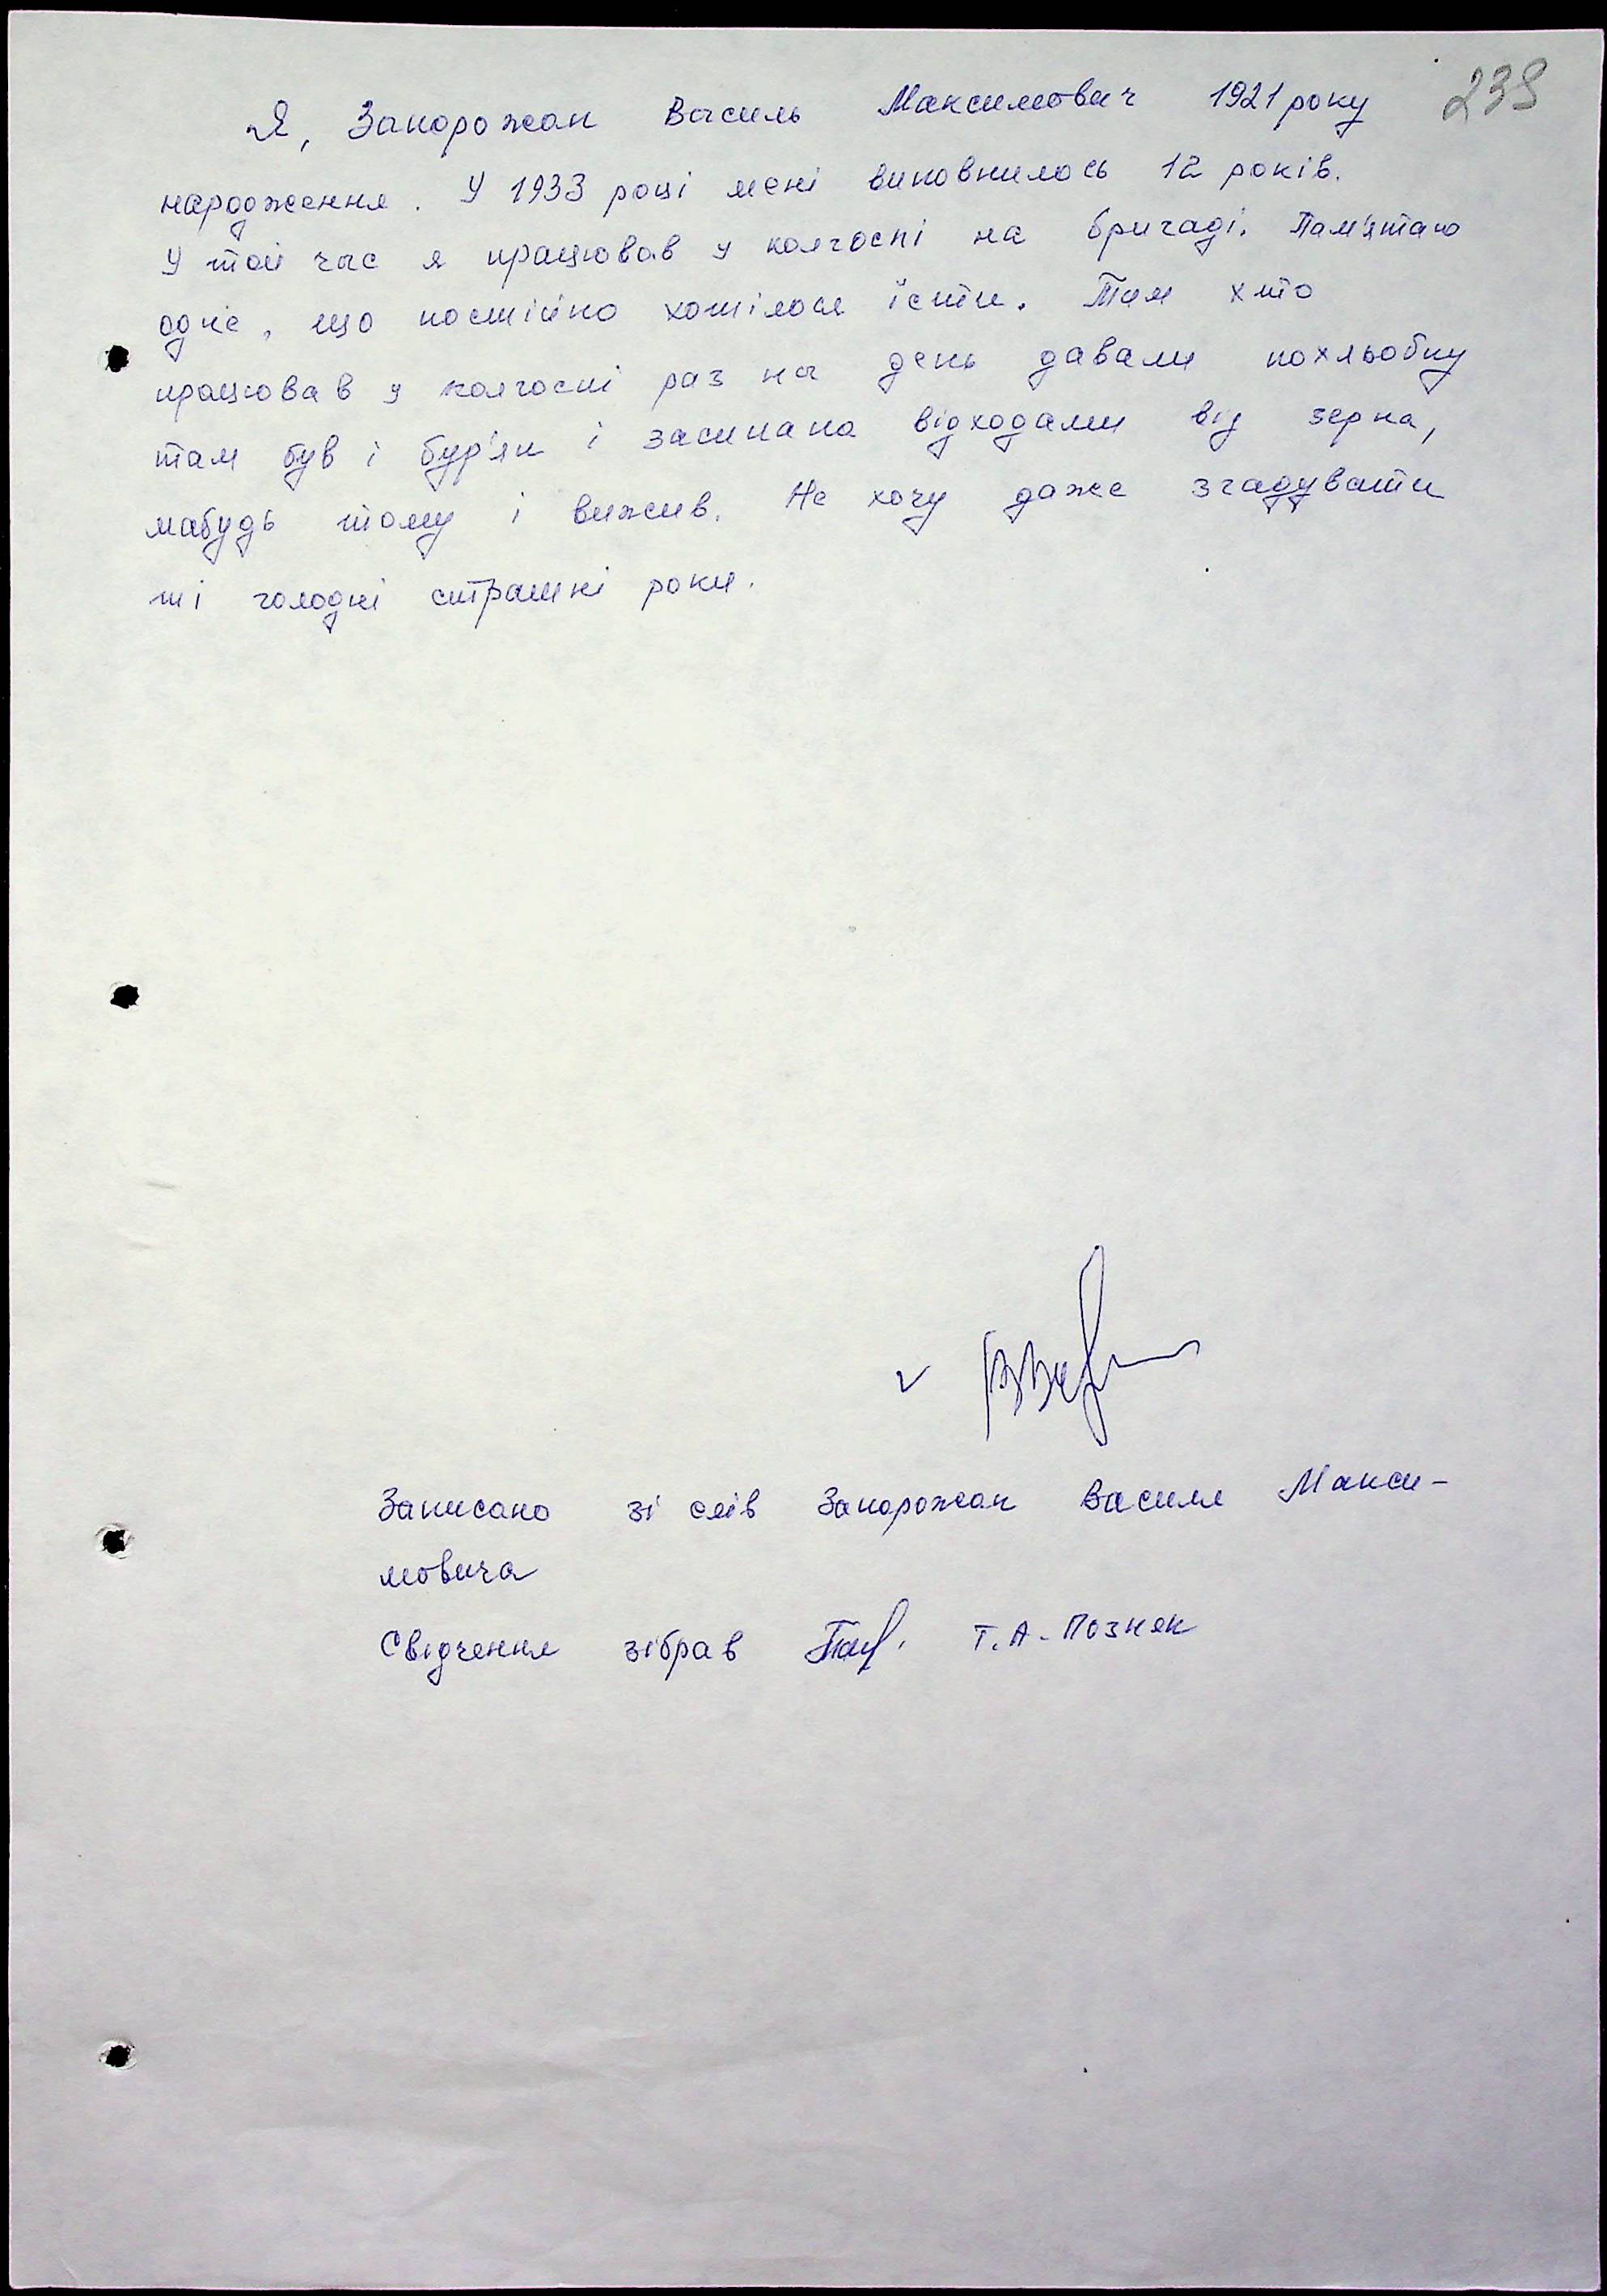 239
Я, Запорожан Василь Максимович 1921 року
народження. У 1933 році мені виповнилось 12 років.
У той час я працював у колгоспі на бригаді. Пам'ятаю
одне, що постійно хотілося їсти. Там хто
працював у колгоспі раз на день давали похльобку
там був і бур'ян і засипана відходами від зерна,
мабудь тому і вижив. Не хочу даже згадувати
ті голодні страшні роки.
Записано зі слів Запорожан Василя Макси-
мовича
Свідчення зібрав Т.А. Позняк